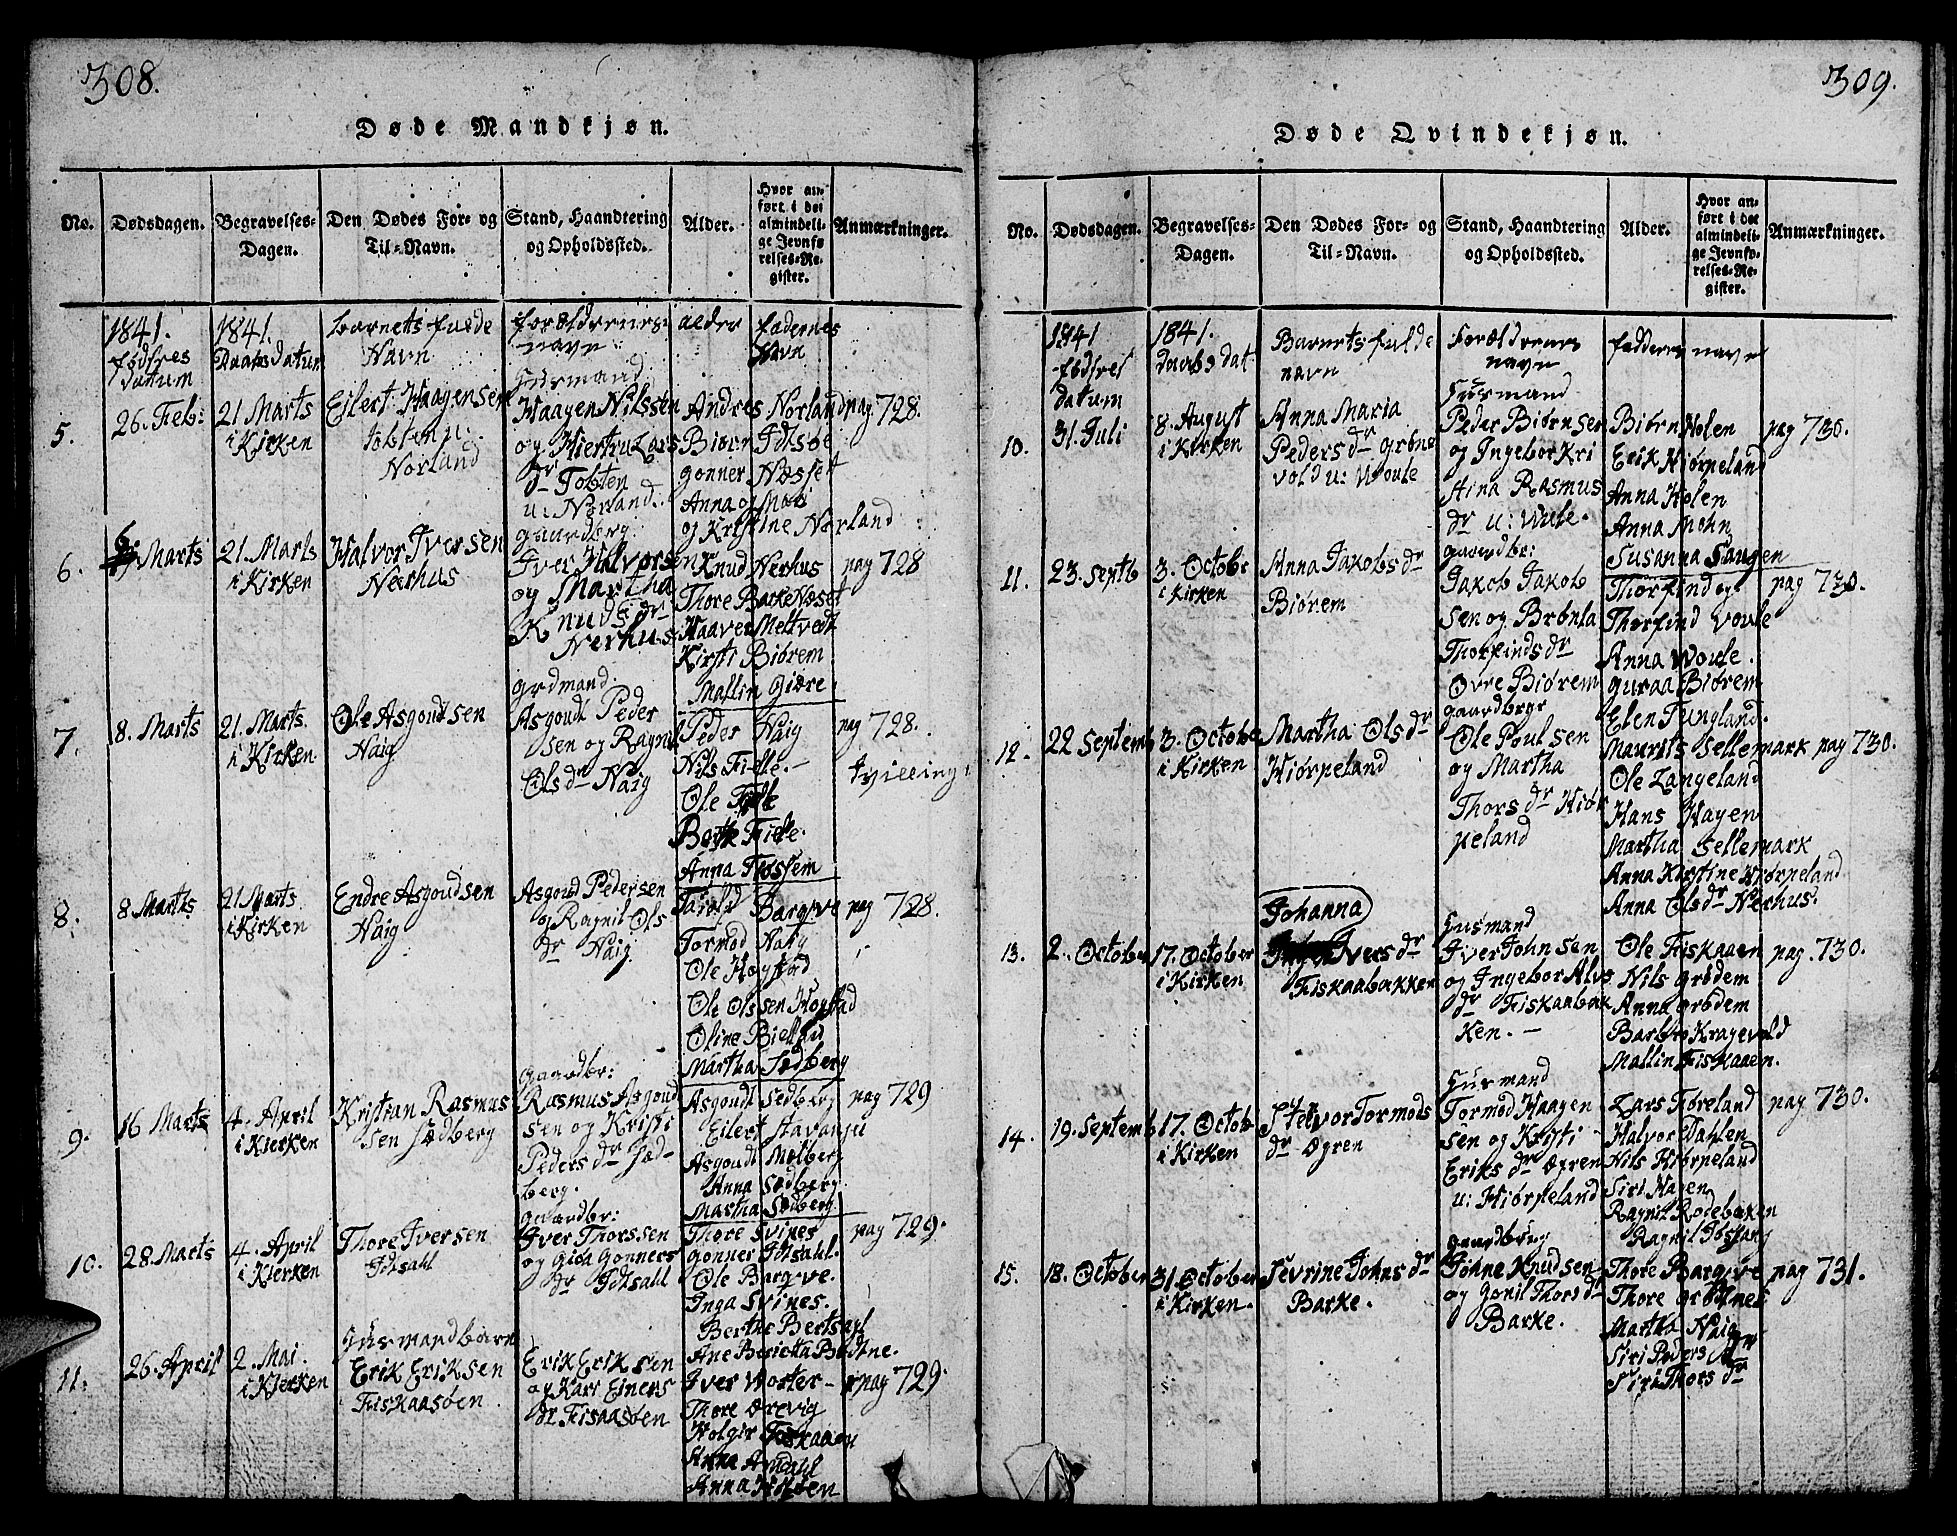 308.
Døde Mandkjøn.
No. Dødsdagen. Begravelses-Dagen. Den Dødes For- og Til-Navn. Stand, Haandtering og Opholdssted. Alder. Hvor anført i det almindelige Jevnførelses-Register. Anmærkninger.
1841. fødsres datum
1841. Daabs datum
barnets fulde Navn
forældrernes navne
aldre
fadernes Navn
5.
26. Feb:
21 Marts i Kirken
Eilert Haagensen
Tobten u:
Norland
Husmand
Haagen Nilssen
og Hiertru Lars
dr Tobten
u: Norland.
Andres Norland
Biørn Idtsøe
gonner Næsset
Anna og Mari
og Kristine Norland
pag 728.
6.
6 Marts
21. Marts i Kirken
Halvor Iversen
Nerhus
gaardbrg:
Iver Halvorsen
og Martha
Knudsdr
Nerhus
Knud Nerhus
Thore Barke Næset
Haaver Meltvedt
Kirsti Biørem
Mallin Giære
pag 728
7.
8. Marts
21. Marts. i Kirken
Ole Asgoudsen
Naig
grdmand
Asgoudt Peder
sen og Ragnil
Olsdr Naig
Peder Naig
Nils Fielle.-
Ole Fielle
Berthe Fielle.
Anna Fossem
pag 728.
tvilling:
8.
8 Marts
21 Marts. i Kirken
Endre Asgoudsen
Naig
Asgoud Pedersen
og Ragnil Ols
dr Naig
Bargve
Tormod Naig
Ole Hogstad
Ole Olssen Hogstad
Oline
Martha Sedberg
pag 728.
9.
16 Marts
4. April i Kierken
Kristian Rasmus
sen Sedberg
gaardbr:
Rasmus Asgoud
sen og Kristi
Peders dr Sed-
berg.
Asgoudt Sedberg
Eilert Stavanju
Asgoudt Molberg
Anna Sedberg
Martha Sedberg
pag 729
10.
28. Marts
4. April i Kierken
Thore Iversen
Idtsahl
gaardbr:
Iver Thorssen
og Gida Gonners
dr Idtsahl
Thore Svines
gonner Idtsahl.
Ole Bargve.
Inga Svines.
Berthe Bertsael
pag 729.
11.
26. April
2. Mai. i Kierken
Husmandbarn
Erik Eriksen
Fiskaasøen
Erik Eriksen
og Kari Einers
dr Fisaasøen
Ane Berietha Bødtne.
Iver Woster-
Thore Ørevig
Holgir Fiskaaen
Anna Amdahl
Anna Holden
pag 729.
309.
Døde Qvindekjøn.
No. Dødsdagen. Begravelses-Dagen. Den Dødes For- og Til-Navn. Stand, Haandtering og Opholdssted. Alder. Hvor anført i det almindelige Jevnførelses-Register. Anmærkninger.
1841 fødsres datum
1841. daabs dat
Barnets fulde navn
Forældrenes navne
fadderes navne
10.
31. Juli
8. August i Kirken
Anna Maria
Peders dr grøne
vold u: Woule
Husmand
Peder Biørnsen
og Ingebor Kri
stina Rasmus
dr u: Wule.
Biørn Holen
Erik Hiørpeland
Anna Holen
Anna Mohn
Susanna Sangen
pag 730.
11.
23. Septb
3. Octobe i Kirken
Anna Jakobs dr
Biørem
gaardbr:
Jakob Jakob
sen og Brønla
Thorfinds dr
Øvre Biørem
Thorfind og
Thorfind Voule
Anna Woule.
guraa Biørem
Elen Tungland.
pag 730.
12.
22 Septemb
3. Octobe i Kirken
Martha Ols dr
Hiørpeland
gaardbrgr
Ole Poulsen
og Martha
Thors dr Hiør
peland
Maurits Sellemark
Ole Langeland
Hans Hagen
Martha Sellemark
Anna Kirstine Hiørpeland
Anna Olsdr Nerhus.
pag 730.
13.
2. October
17. October i Kirken
Johanna
Ivers dr
Fiskaabakken
Husmand
Iver Johnsen
og Ingebor Alvs
dr Fiskaabak
ken. -
Ole Fiskaaen
Nils grødem
Anna grødem
Barbro Kragevold
Mallin Fiskaaen.
pag. 730.
14.
19. Septemb
17. Octob. i Kirken
Stelvor Tormods
dr Øgren
Husmand
Tormod Haagen
sen og Kristi
Eriks dr Øgren
u: Hiørpeland
Lars Føreland
Halvor Dahlen
Nils Hiørpeland
Siri Hagen
Ragnil Rodebaken
Ragnil Tøssang
pag 730.
15.
18. October
31. October i Kirken.
Sevrine Johns dr
Barke.
gaardbrug
Johne Knudsen
og Gonil Thorsdr
Barke.
Thore Bargve
Thore grødnes
Martha Naig
Siri Peders dr
Siri Thors dr
pag 731.